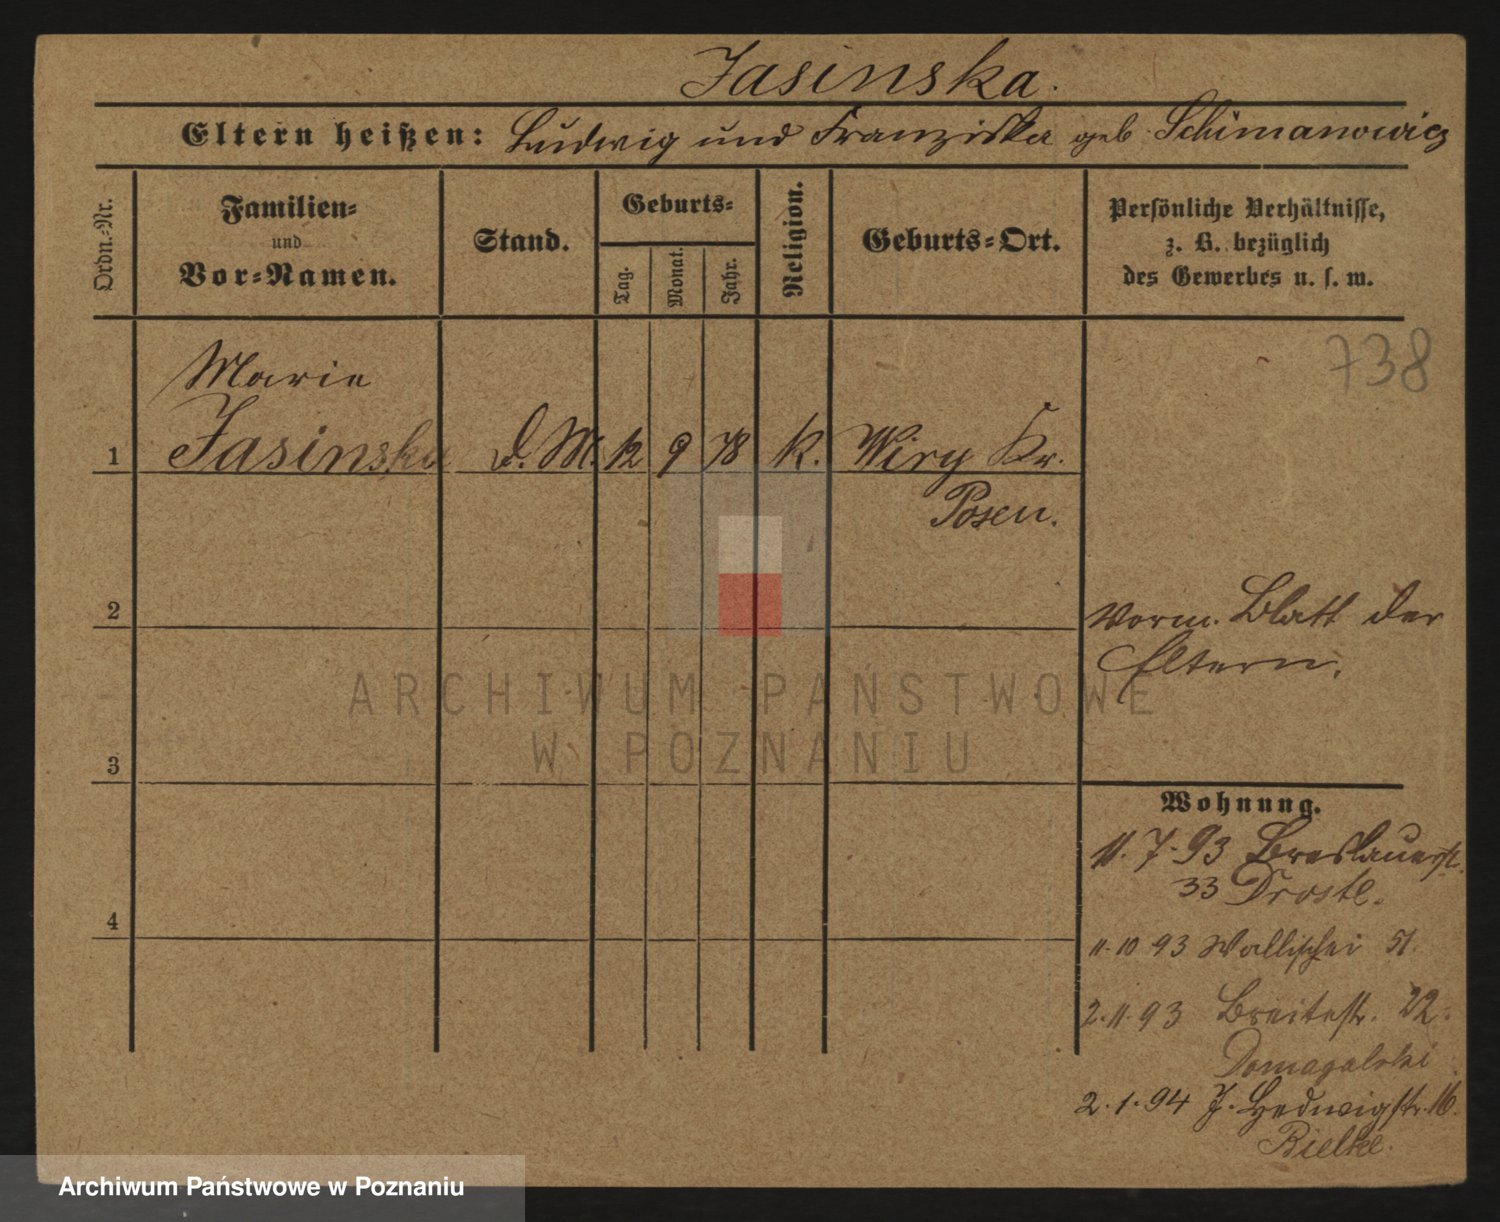 Jasinska.
Eltern heißen: Ludwig und Franziska geb. Schimanowicz
Ordn.-Nr.
Familien-
und
Vor-Namen.
Stand.
Geburts-
Tag.
Monat.
Jahr.
Religion.
Geburts-Ort.
Persönliche Verhältnisse,
z. B. bezüglich
des Gewerbes u. s. w.
738
Marie
1 Jasinska d. M. 12 9 78 k. Wiry Kr.
Posen.
2
vorm. Blatt der
Eltern.
ARCHIWUM PAŃSTWOWE
W POZNANIU
3
Wohnung.
11. 7. 93 Breslauerstr.
33 Droste.
4
11. 10 93 Wallischei 51.
2. 11. 93 Breitestr. 22.
Domagalski
2. 1. 94 J. Hedwigstr. 16.
Bielke.
Archiwum Państwowe w Poznaniu